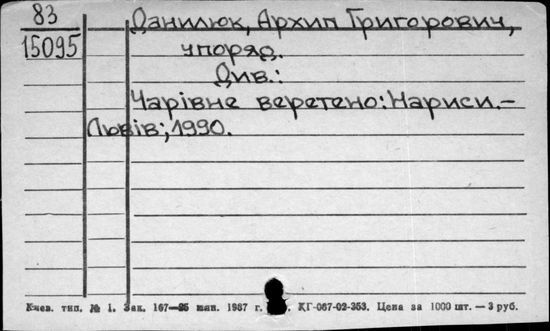 83
15095
Данилюк, Архип Григорович,
упоряд.
Див.:
Чарівне веретено: Нариси.-
Львів;, 1990.
Киев. тип. № 1. Зак. 167—25 шан. 1987 г. КГ-067-02-353. Цена за 1000 шт. — 3 руб.